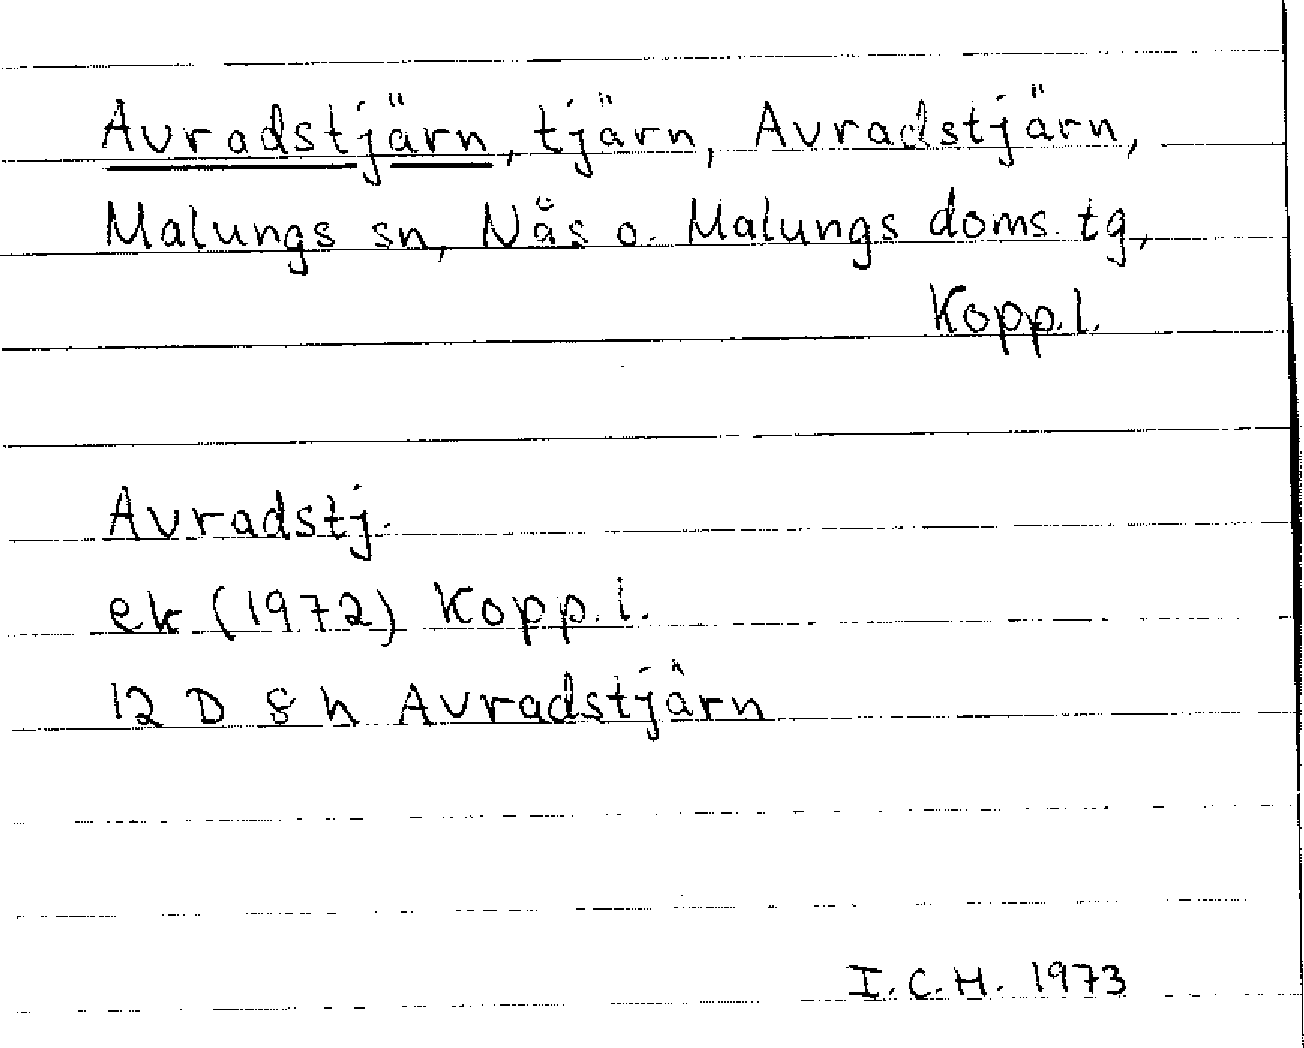 Avradstjärn, tjärn, Avradstjärn,
Malungs sn, Nås o. Malungs doms. tg,
Kopp. l.
Avradstj.
ek (1972) Kopp. l.
12 D 8 h Avradstjärn
I. C. H. 1973